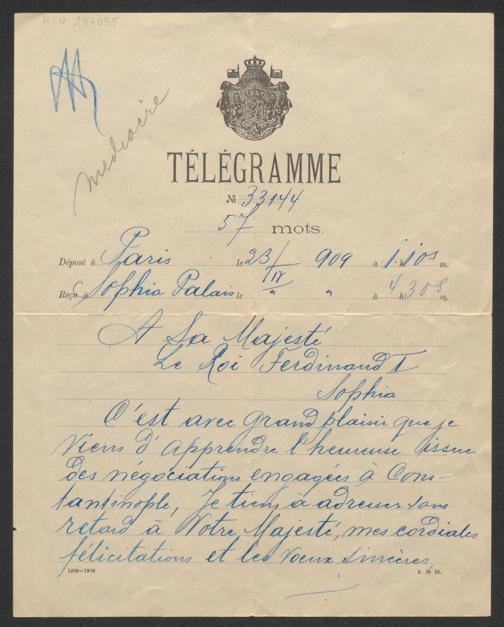 AIN 247035
médiocre
TÉLÉGRAMME
№ 33144
57 mots.
Déposé à Paris le 23/IV 909 à 1 h 10 s m.
Reçu à Sophia Palais le " " à 4 h 30 s m.
A Sa Majesté
Le Roi Ferdinand I
Sophia
C'est avec grand plaisir que je
viens d'apprendre l'heureuse issue
des négociations engagées à Cons-
tantinople, Je tiens à adresser sans
retard à Votre Majesté, mes cordiales
félicitations et les voeux sincères